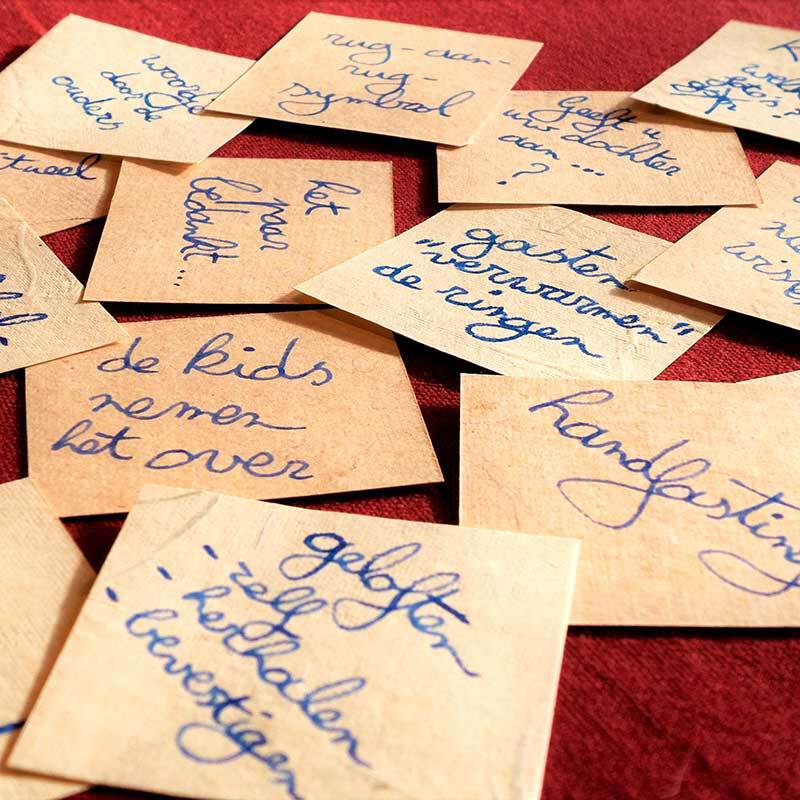 door de
ouders
rug-aan-
rug-
symbool
Geeft u
uw dochter
aan...
?
tueel
het
paar
bedankt...
gasten
"verwarmen"
de ringen
de kids
nemen
het over
handfasting
geloften
- zelf
- herhalen
- bevestigen